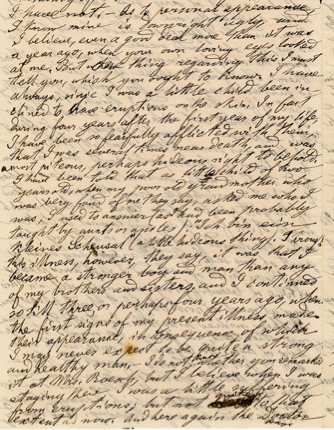 I have not. As to personal appearance
I know mine is downright ugly, and
I believe, even a good deal more than it was
a year ago, when your own loving eyes looked
at me. But one thing regarding this I must
tell you, which you ought to know. I have
always, since I was a little child been in-
clined to have eruptions on the skin. In fact
during four years after the first year of my life,
I have been so fearfully afflicted with them
that I was several times near death, and was
a most piteous, perhaps hideous sight to behold.
I have been told that as little child of two
years old, when my own old grandmother, who
was very fond of me they say, asked me who I
was, I used to answer (as had been probably
taught by aunts or uncles): Ich bin ein
kleines Scheusal (a little hideous thing). Through
this illness, however, they say it was that I
became a stronger boy and man than any
of my brothers and sisters, and I continued
so till three or perhaps four years ago, when
the first signs of my present illness made
their appearance, in consequence of which
I may never expect to be quite a strong
and healthy man. I do not know whether you remarked
it at Mrs. but I believe when I was
staying there I was a little suffering
from eruptions, but not to that
extent as now. And here again the Doctor